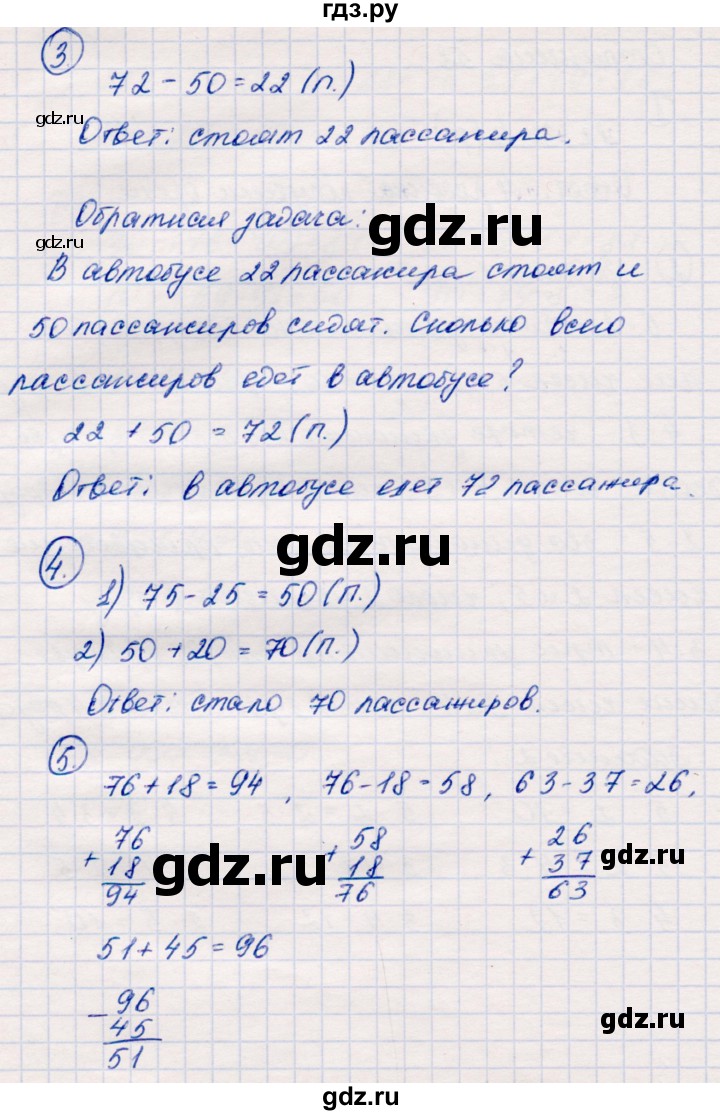 гдз.ру
3.
72 - 50 = 22 (п.)
gdz.ru
Ответ: стоят 22 пассажира.
Обратная задача:
gdz.ru
В автобусе 22 пассажира стоят и
50 пассажиров сидят. Сколько всего
пассажиров едет в автобусе?
22 + 50 = 72 (п.)
Ответ: в автобусе едет 72 пассажира.
gdz.ru
4.
1) 75 - 25 = 50 (п.)
2) 50 + 20 = 70 (п.)
Ответ: стало 70 пассажиров.
5.
76 + 18 = 94, 76 - 18 = 58, 63 - 37 = 26,
+ 76 + 58 + 26
18 18 37
94 76 63
gdz.ru gdz.ru gdz.ru
51 + 45 = 96
- 96
45
51
gdz.ru
gdz.ru